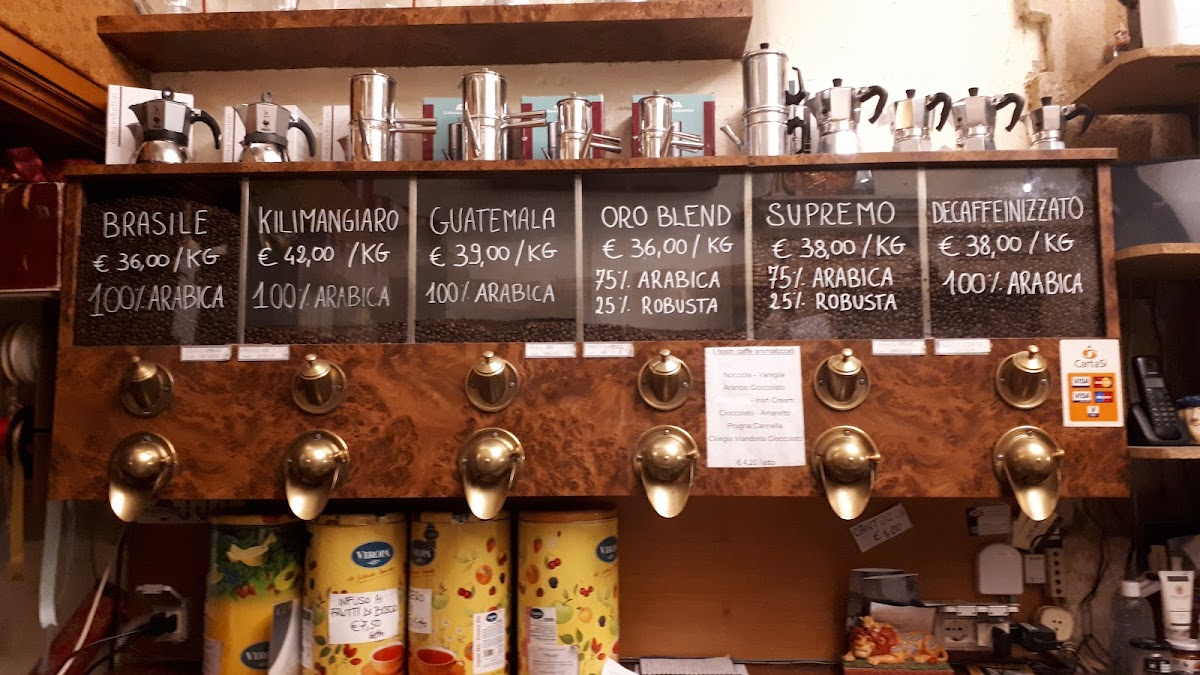 BRASILE
€ 36,00/KG
100% ARABICA
KILIMANGIARO
€ 42,00 /KG
100% ARABICA
GUATEMALA
€ 39,00 /KG
100% ARABICA
ORO BLEND
€ 36,00/KG
75% ARABICA
25% ROBUSTA
SUPREMO
€ 38,00/KG
75% ARABICA
25% ROBUSTA
DECAFFEINIZZATO
€ 38,00/KG
100% ARABICA
I nostri caffè aromatizzati
Nocciola - Vaniglia
Arancio Cioccolato
- Irish Cream
Cioccolato - Amaretto
Prugna Cannella
Ciliegio Mandorla Cioccolato
€ 4,20 l'etto
CartaSi
VISA
VISA
VIROPA
INFUSO AI
FRUTTI DI BOSCO
€7,50
l'etto
VIROPA
€ 1,00